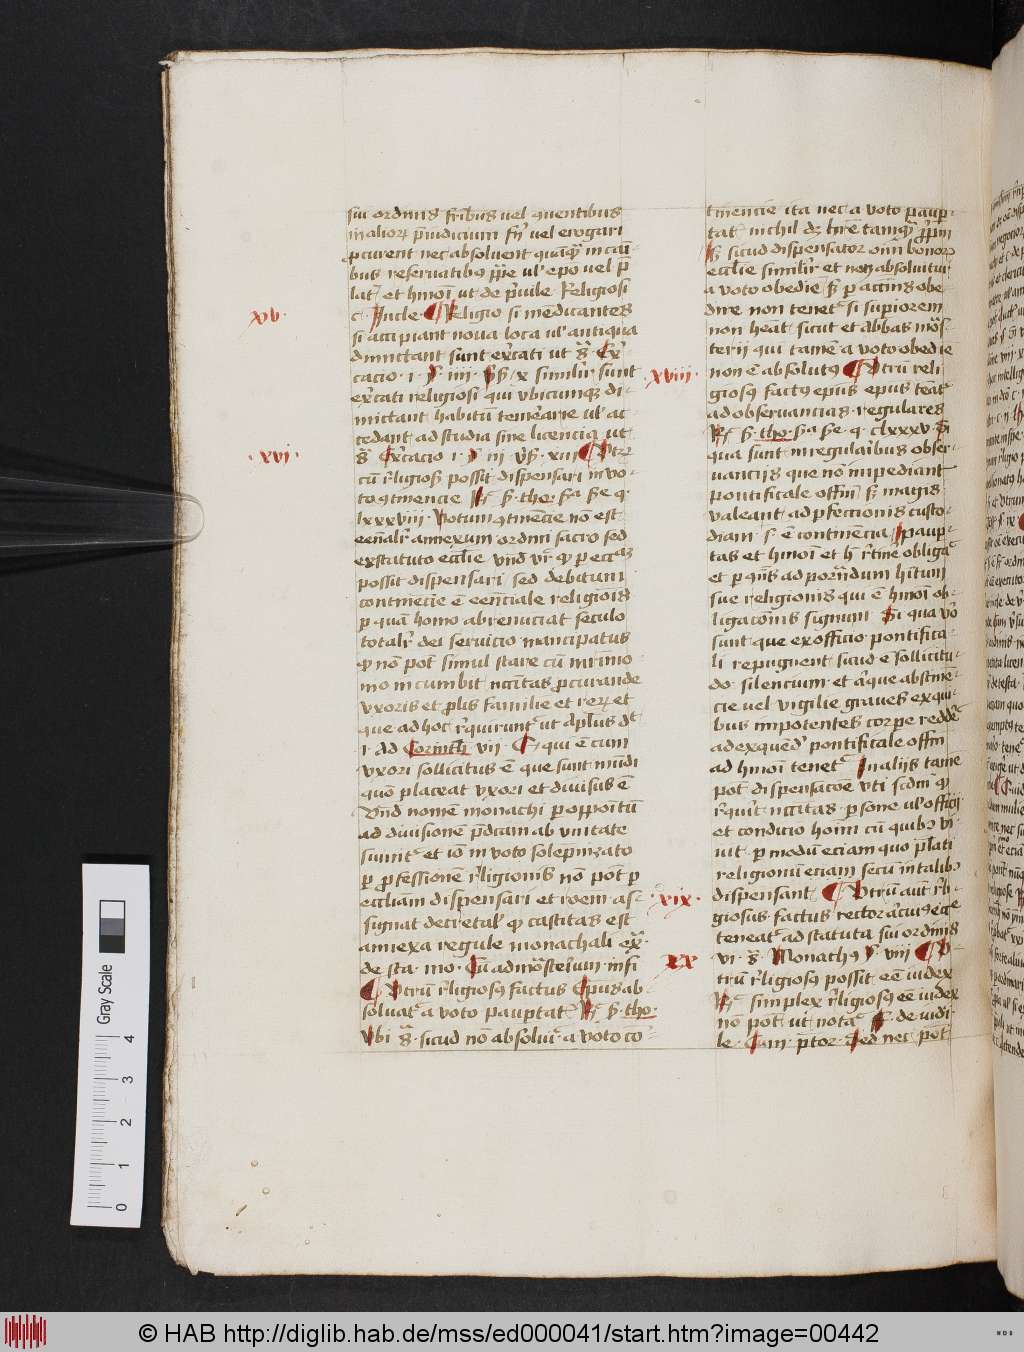 sui ordinis fr̄ibus uel quentibus
in alior̄ p̄iudicium fr̄ uel erogari
ꝓcurent nec absoluent quāqꝫ in cāi
bus reseruatibus ꝓp̄e ul' ep̄o uel p̄
lat' et hmōi ut de p̄uile Religiosi
xv.
c. Nucle. ¶ Religio si medicantes
si accipiant noua loca ul' antiqua
dimictant sunt ex̄cati ut s̄ Ex̄
cacio . i . § . iiii . vs̄ . x similir̄ sunt
ex̄cati religiosi qui vbicumqꝫ di
mictant habitū temerarie ul' ac
cedant ad studia sine licencia ut
.xvi.
s̄ Ex̄cacio i . § iii vs̄ . xiii ¶ Vtr̄
cū r̄ligiosꝰ possit dispensari in vo
to ꝯtinencie R̄ s̄ . tho . sᵃ se q̄
lxxxviii . Votum ꝯtinēcie nō est
eēnalit̄ annexum ordini sacro sed
ex statuto eccl̄ie vnd̄ vr̄ qꝫ p ecc̄aꝫ
possit dispensari sed debitum
contineēcie ē eēnciale religiois
p quā homo abrenuciat seculo
totalit̄ dei seruicio mancipatus
qꝫ nō pot̄ simul stare cū mr̄imo
mo in cumbit nccītas ꝓcurande
vxoris et ꝓlis familie et rerꝫ et
que ad hoc r̄quirunt̄ ut apl̄us dt̄
i . Ad Corinth vii . qui ē cum
vxori sollicitus ē que sunt mūdi
quō placeat vxori et diuisus ē
Vnd nomē monachi ꝑ oppoitū
ad diuisionē p̄dicam ab vnitate
sumit̄ et iō in voto solepnizato
ꝑ ꝓfessionē r̄ligionis nō pot̄ ꝑ
eccl̄iam dispensari et roem as
signat decretal' qꝫ castitas est
annexa regule monachali ex̄.
de sta . mo . Cū ad mōsterium in fi
¶ Vtrū r̄ligiosꝰ factus Ep̄us ab
soluat̄ a voto pauptat̄ R̄ s̄ . tho .
Vbi s̄ . sicud nō absoluit̄ a voto co
tinencie ita nec a voto paup
tat̄ nichil dꝫ hr̄e tamqꝫ ꝓpm̄
s̄ sicud dispensator om̄i bonorꝫ
eccl̄ie similit̄ et non absoluitur
a voto obediē s̄ p accn̄s obe
dire non tenet̄ si supiorem
non heāt sicut et abbas mōs
terij qui tamē a voto obedie
xviii.
non ē absolutꝰ ¶ Vtrū reli
giosꝰ factꝰ ep̄us ep̄us teāt̄
ad obseruancias regulares
R̄ s̄ . tho . sᵃ se . q . clxxxv . Si
qua sunt in regularibus obser
uancijs que nō impediant
pontificale offm̄ s̄ magis
valeant ad pfeccionis custo
diam s̄ ē continēcia paup
tas et hmōi et h̄ r̄tine obliga
et p qn̄s ad portādum h̄itum
sue religionis qui ē hmōi ob
ligacōnis signum Si qua vō
sunt que ex officio pontifica
li repugnent sicud ē sollicitu
do . silencium . et aque abstinē
cie uel vigilie graues ex qui
bus impotentes corpe reddēt
ad exquend' pontificale offm
ad hmōi tenet̄ In alijs tamē
pot̄ dispensacōe vti scdm̄ qꝫ
r̄quit̄ nccitas . psone ul' officij
et condicio homī cū quibꝰ vi
uit . p modū eciam quo p̄lati
religionū eciam secū in talibꝰ
xix.
dispensant ¶ Vtrū aut r̄li
giosus factus rector
teneat̄ ad statuta sui ordinis
xx
vi . s̄ . Monachꝰ § . viii ¶ V
trū r̄ligiosꝰ possit eē iudex
R̄ simplex r̄ligiosꝰ eē iudex
nō pot̄ ut notat̄ de iudi
le . Cum p̄tor . Sed nec pot̄
Gray Scale
4
3
2
1
0
© HAB http://diglib.hab.de/mss/ed000041/start.htm?image=00442